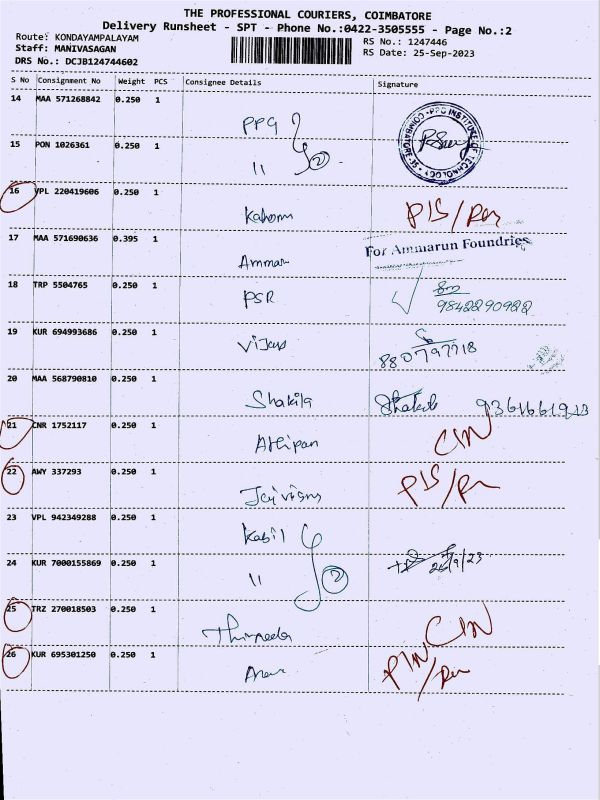 THE PROFESSIONAL COURIERS, COIMBATORE
Delivery Runsheet - SPT - Phone No.:0422-3505555 - Page No.:2
Route: KONDAYAMPALAYAM
Staff: MANIVASAGAN
DRS No.: DCJB124744602
RS No.: 1247446
RS Date: 25-Sep-2023
S No Consignment No Weight PCS Consignee Details Signature
14 MAA 571268842 0.250 1
PPG
PPG INSTITUTE OF TECHNOLOGY COIMBATORE-35
15 PON 1026361 0.250 1
11 2
16 VPL 220419606 0.250 1
17 MAA 571690636 0.395 1
For Ammarun Foundries
Ammar
18 TRP 5504765 0.250 1
PSR
9842290922
19 KUR 694993686 0.250 1
8807977718
20 MAA 568790810 0.250 1
Shakila
21 CNR 1752117 0.250 1
Athipan CIN
22 AWY 337293 0.250 1
23 VPL 942349288 0.250 1
Kabil
24 KUR 7000155869 0.250 1
11 2
25 TRZ 270018503 0.250 1
CIN
26 KUR 695301250 0.250 1